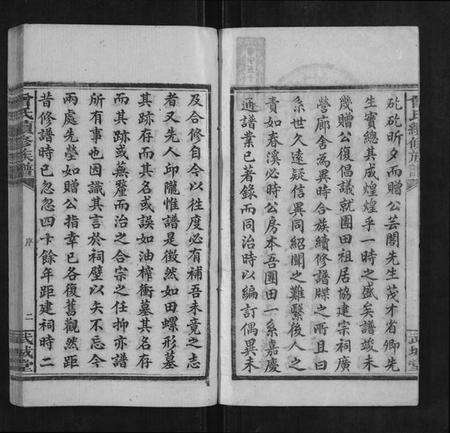 矻矻昕夕而贈公芸閣先生茂才省卿先
生實總其成煌煌乎一時之盛矣譜竣未
幾贈公復倡議就團田祖居協建宗祠廣
營廊舍為異時合族續修譜牒之所且曰
系世久遠疑信異同紹聞之難繫後人之
責如春溪必時公房本吾團田一系嘉慶
通譜業已著錄而同治時以編訂偶異未
及合修自今以往度必有補吾未竟之志
者又先人邱隴惟譜是徵然如田螺形墓
其跡存而其名或誤如油榨衝墓其名存
而其跡或蕪釐而治之合宗之任抑亦譜
所有事也因識其言於祠壁以矢不忘今
兩處先塋如贈公指幸已各復舊觀然距
昔修譜時已忽忽四十餘年距建祠時二
曾氏續修族譜
序
二
武城堂